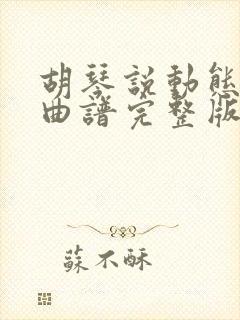 胡琴説動態
曲譜完整版
蘇不酥